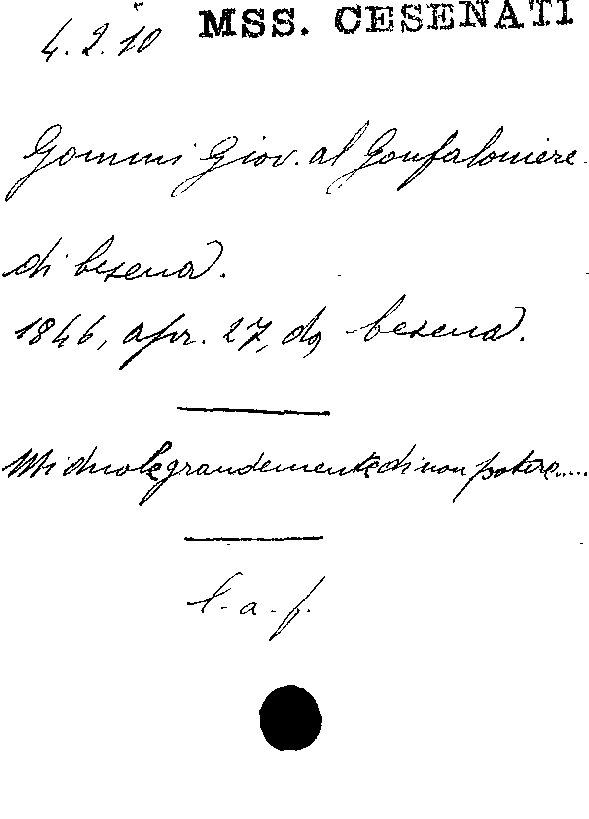 4.2.10 MSS. CESENATI
Gommi Giov. al Gonfaloniere
di Cesena.
1846, apr. 27, da Cesena.
Mi duole grandemente di non potere.....
l. a. f.